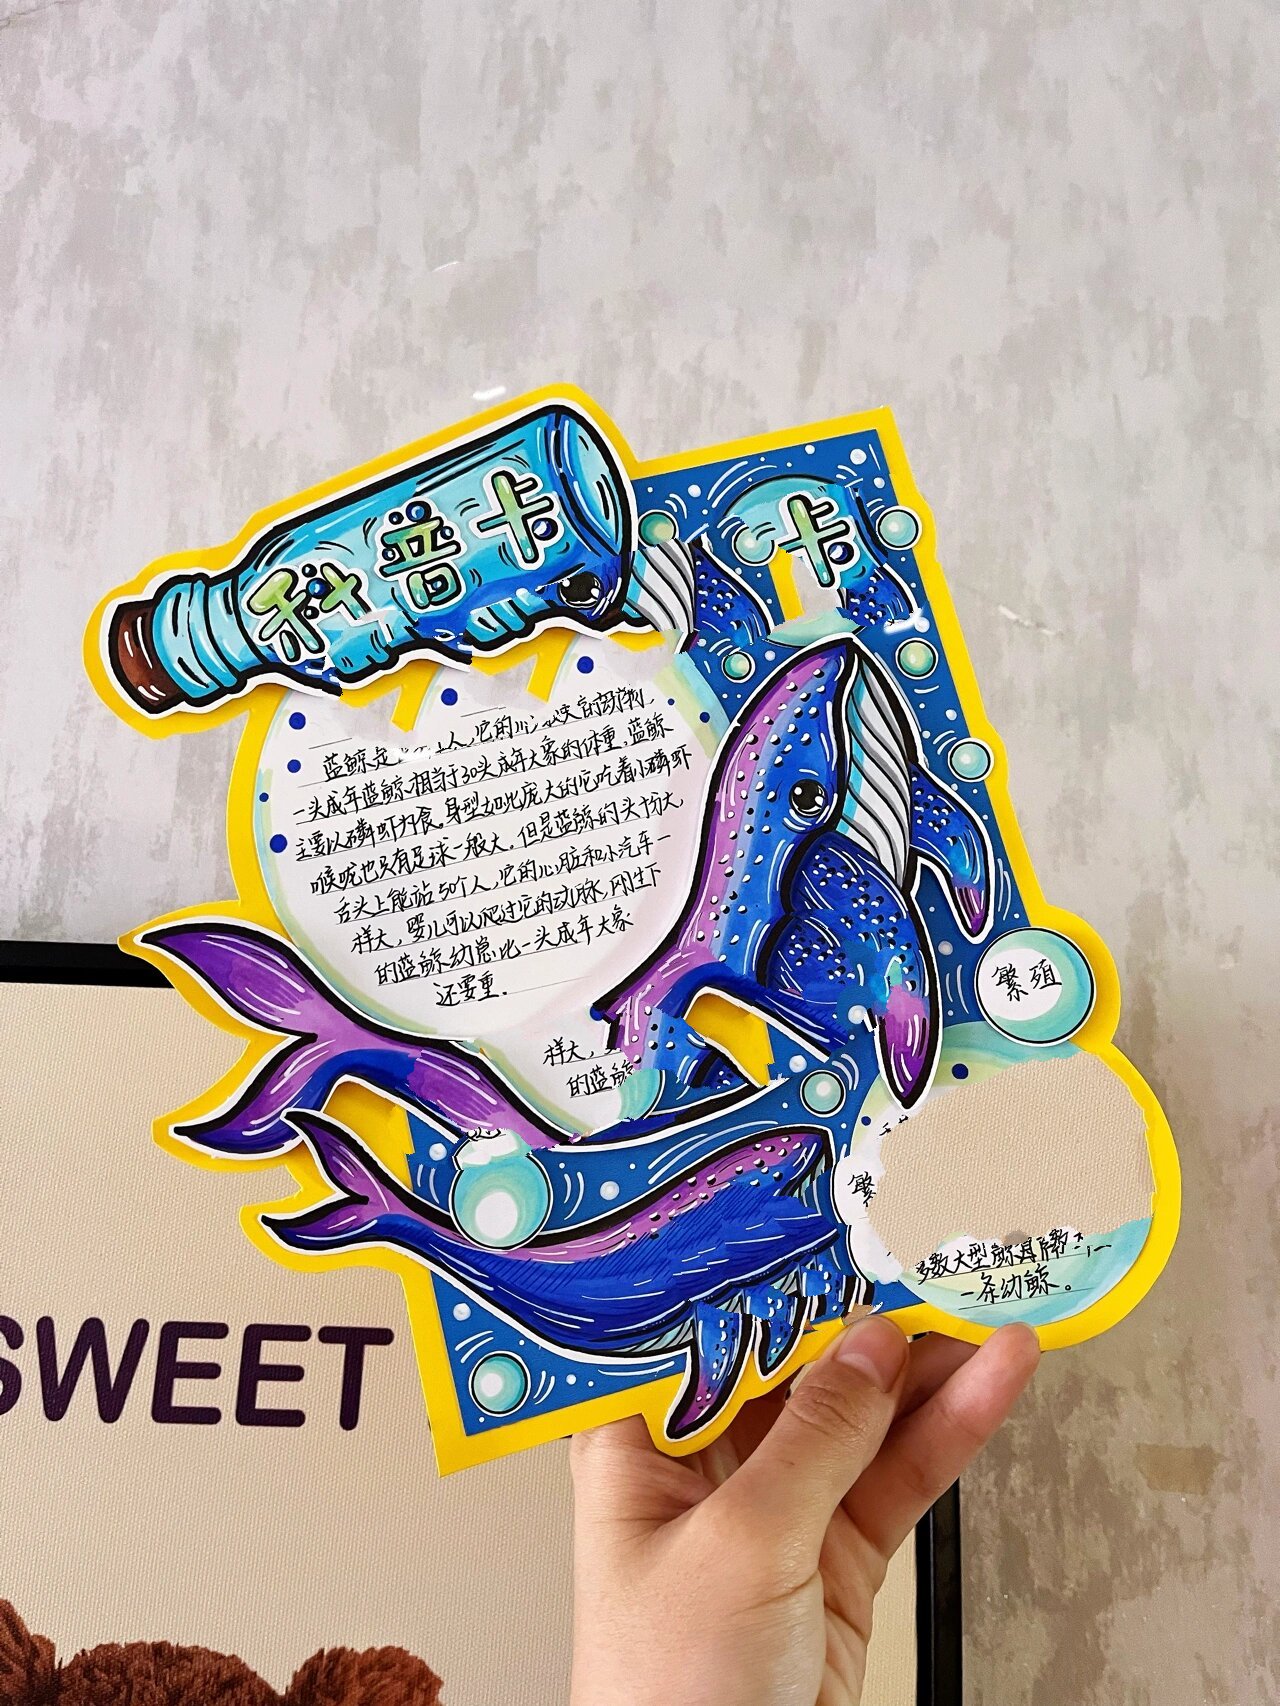 科普卡
卡
蓝鲸是 人,它的 的动物,
一头成年蓝鲸相当于30头成年大象的体重,蓝鲸
主要以磷虾为食。身型如此庞大的它吃着小磷虾
喉咙也只有足球一般大。但是蓝鲸的头十份大,
舌头上能站50个人,它的心脏和小汽车一
样大,婴儿可以爬过它的动脉,刚生下
的蓝鲸幼崽比一头成年大象
还要重.
样大,
的蓝鲸
繁殖
繁
多数大型
一条幼鲸。
SWEET